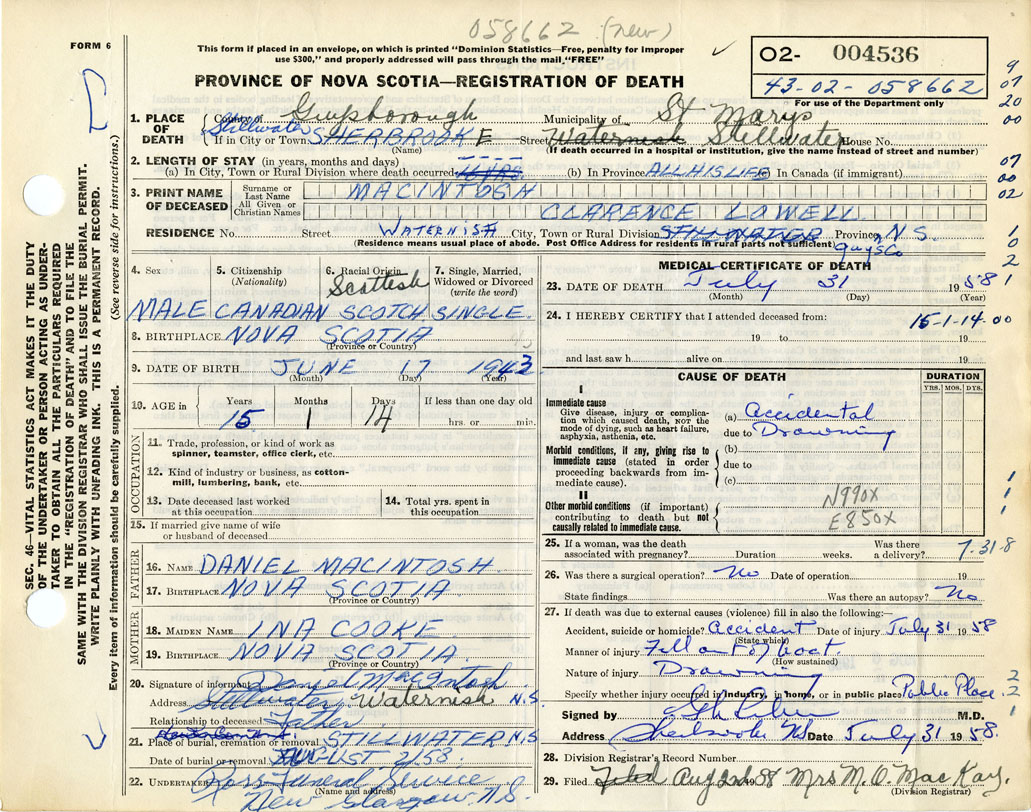 058662 (new)
FORM 6
This form if placed in an envelope, on which is printed "Dominion Statistics—Free, penalty for improper
use $300," and properly addressed will pass through the mail, "FREE"
O2- 004536
43-02-058662
For use of the Department only
PROVINCE OF NOVA SCOTIA—REGISTRATION OF DEATH
1. PLACE OF DEATH
County of Guysborough Municipality of St Marys
Stillwater
If in City or Town SHERBROOKE Street Waternish Stillwater House No.
(Name) (If death occurred in a hospital or institution, give the name instead of street and number)
2. LENGTH OF STAY (in years, months and days)
(a) In City, Town or Rural Division where death occurred (b) In Province ALL HIS LIFE (c) In Canada (if immigrant)
3. PRINT NAME OF DECEASED
Surname or Last Name MACINTOSH
All Given or Christian Names CLARENCE LOWELL
RESIDENCE No. Street WATERNISH City, Town or Rural Division STILLWATER Province N.S.
(Residence means usual place of abode. Post Office Address for residents in rural parts not sufficient) Guys Co
4. Sex 5. Citizenship (Nationality) 6. Racial Origin 7. Single, Married, Widowed or Divorced (write the word)
Scottish
MALE CANADIAN SCOTCH SINGLE.
8. BIRTHPLACE NOVA SCOTIA
(Province or Country)
9. DATE OF BIRTH JUNE 17 1943
(Month) (Day) (Year)
10. AGE in Years Months Days If less than one day old
15 1 14 hrs. or min.
OCCUPATION
11. Trade, profession, or kind of work as
spinner, teamster, office clerk, etc.
12. Kind of industry or business, as cotton-
mill, lumbering, bank, etc.
13. Date deceased last worked
at this occupation
14. Total yrs. spent in
this occupation
15. If married give name of wife
or husband of deceased
FATHER
16. NAME DANIEL MACINTOSH.
17. BIRTHPLACE NOVA SCOTIA
(Province or Country)
MOTHER
18. MAIDEN NAME INA COOKE
19. BIRTHPLACE NOVA SCOTIA.
(Province or Country)
20. Signature of informant Daniel MacIntosh
Address Stillwater Waternish N.S
Relationship to deceased Father
21. Place of burial, cremation or removal STILLWATER N.S
Date of burial or removal AUGUST 2, 58
22. UNDERTAKER Ross Funeral Service
(Name and address)
New Glasgow, N.S.
MEDICAL CERTIFICATE OF DEATH
23. DATE OF DEATH July 31 1958
(Month) (Day) (Year)
24. I HEREBY CERTIFY that I attended deceased from:
15-1-14-00
19 to 19
and last saw h alive on 19
CAUSE OF DEATH
DURATION
YRS. MOS. DYS.
I
Immediate cause
Give disease, injury or complica-
tion which caused death, NOT the
mode of dying, such as heart failure,
asphyxia, asthenia, etc.
(a) Accidental
due to Drowning
Morbid conditions, if any, giving rise to
immediate cause (stated in order
proceeding backwards from im-
mediate cause).
(b)
due to
(c)
II
Other morbid conditions (if important)
contributing to death but not
causally related to immediate cause.
N990X
E850X
25. If a woman, was the death
associated with pregnancy? Duration weeks. Was there
a delivery?
7-31-8
26. Was there a surgical operation? No Date of operation 19
State findings Was there an autopsy? No
27. If death was due to external causes (violence) fill in also the following:—
Accident, suicide or homicide? Accident Date of injury July 31 1958
(State which)
Manner of injury Fell out of boat.
(How sustained)
Nature of injury Drowning
Specify whether injury occurred in industry, in home, or in public place Public Place.
Signed by M.D.
Address Sherbrooke NS Date July 31 1958.
28. Division Registrar's Record Number
29. Filed Aug 2 1958 Mrs M.O. MacKay.
(Division Registrar)
SEC. 46—VITAL STATISTICS ACT MAKES IT THE DUTY
OF THE UNDERTAKER OR PERSON ACTING AS UNDER-
TAKER TO OBTAIN ALL THE PARTICULARS REQUIRED
IN THE "REGISTRATION OF DEATH" AND TO FILE THE
SAME WITH THE DIVISION REGISTRAR WHO SHALL ISSUE THE BURIAL PERMIT.
WRITE PLAINLY WITH UNFADING INK. THIS IS A PERMANENT RECORD.
Every item of information should be carefully supplied. (See reverse side for instructions.)
9
07
20
00
07
00
02
1
0
2
1
1
1
1
2
2
1